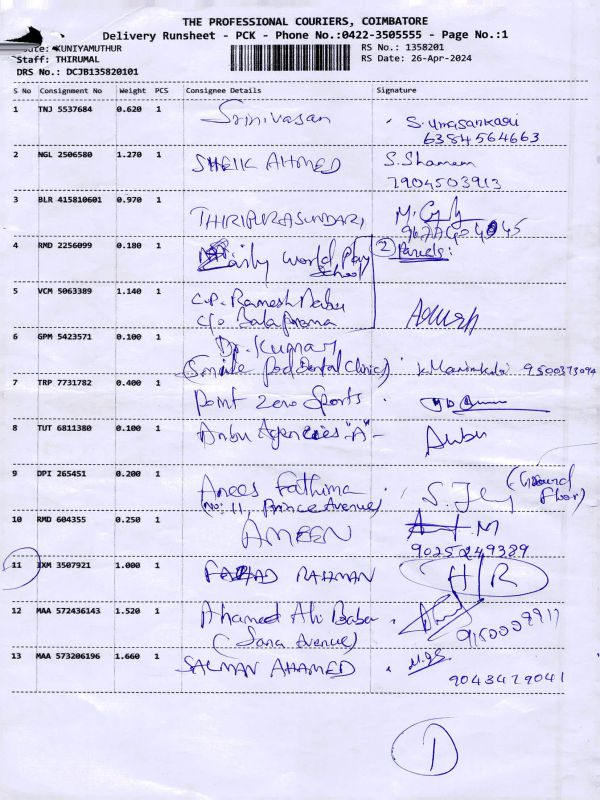 THE PROFESSIONAL COURIERS, COIMBATORE
Delivery Runsheet - PCK - Phone No.:0422-3505555 - Page No.:1
KUNIYAMUTHUR
RS No.: 1358201
Staff: THIRUMAL
RS Date: 26-Apr-2024
DRS No.: DCJB135820101
S No Consignment No Weight PCS Consignee Details Signature
1 TNJ 5537684 0.620 1 Srinivasan S. Umasankari
6384564663
2 NGL 2506580 1.270 1 SHEIK AHMED S. Shamem
7904503913
3 BLR 415810601 0.970 1 THIRIPURASUNDARI
4 RMD 2256099 0.180 1 Early World Play School 2 Parcels:
5 VCM 5063389 1.140 1 C.P. Ramesh Babu
C/o Bala Prema
6 GPM 5423571 0.100 1 Dr. Kumar
(Smile Pod Dental Clinic) 9500373094
7 TRP 7731782 0.400 1 Point Zero Sports
8 TUT 6811380 0.100 1 Anbu Agencies "A" Anbu
9 DPI 265451 0.200 1 Anees Fathima (Ground Floor)
(No: 11, Prince Avenue)
10 RMD 604355 0.250 1 AMEEN M
9025249389
11 IXM 3507921 1.000 1 FAHAD RAHMAN H/R
12 MAA 572436143 1.520 1 Ahamed Ali Baba
(Sana Avenue)
13 MAA 573206196 1.660 1 SALMAN AHAMED
9043429041
1